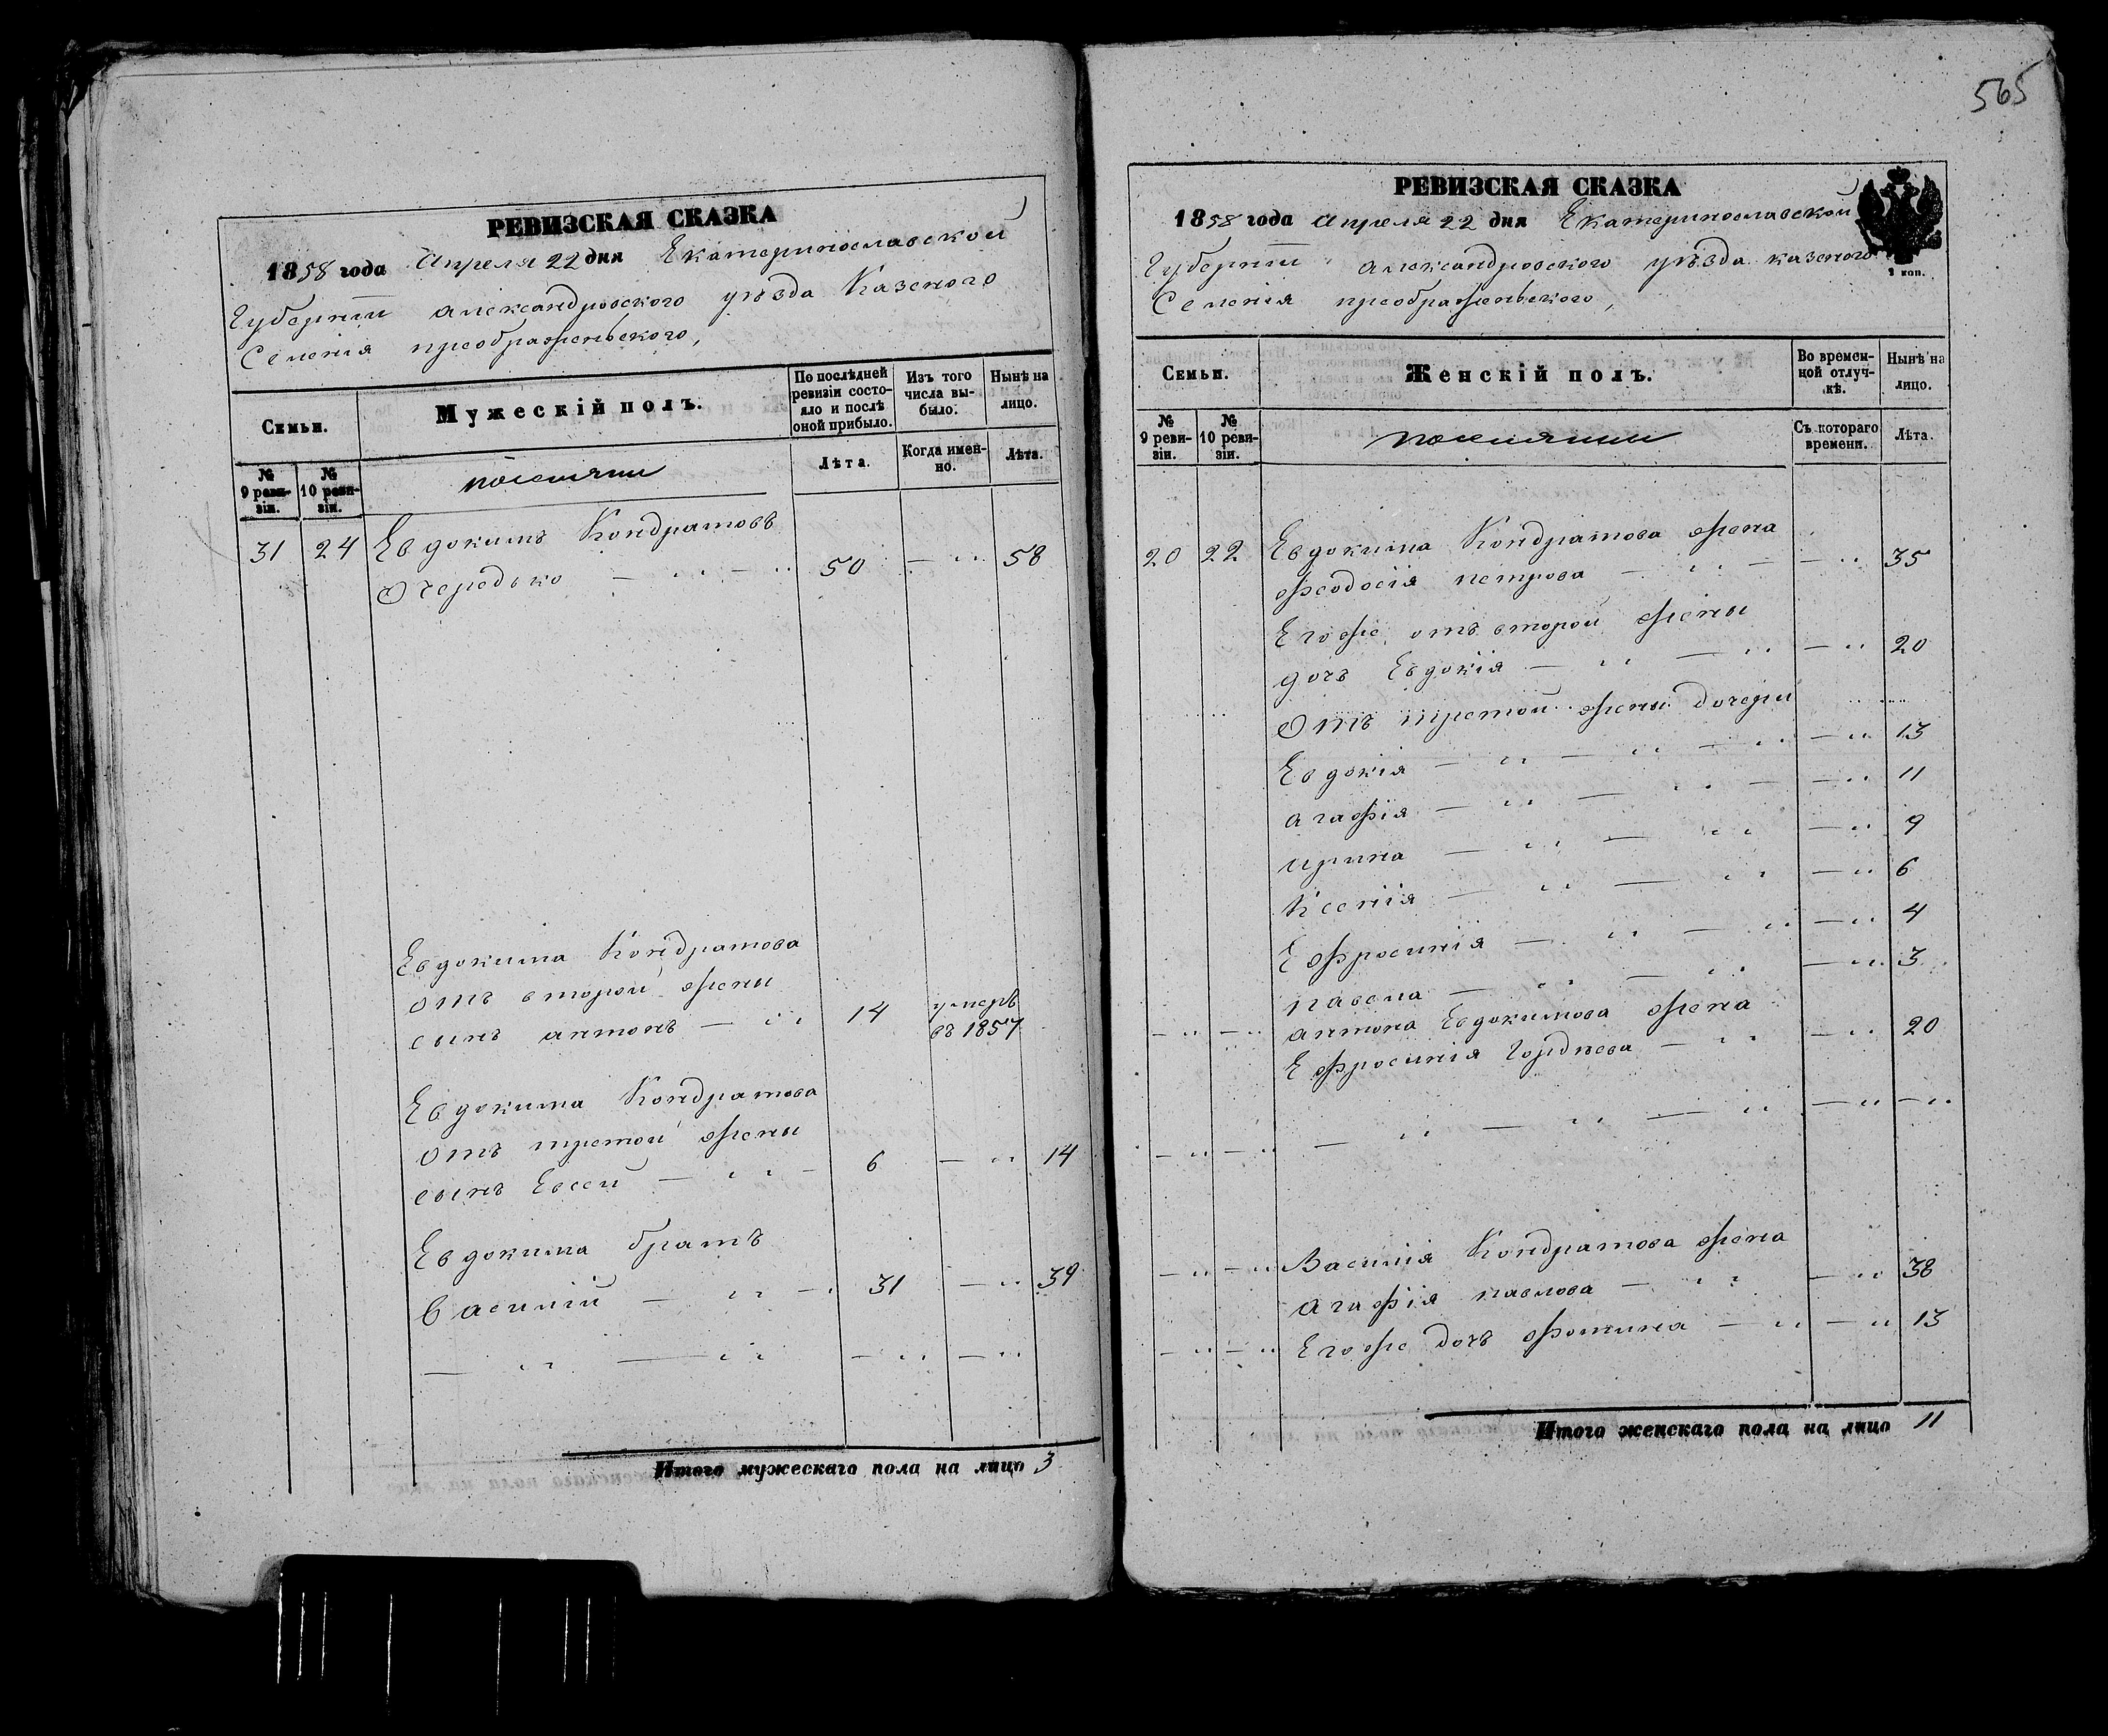 565
РЕВИЗСКАЯ СКАЗКА
1858 года Апреля 22 дня Екатеринославской
Губернїи александровского уѣзда Казеного
Селенїя преображеньского,
Семьи.
Мужескій полъ.
По послѣдней ревизіи состояло и послѣ оной прибыло.
Изъ того числа выбыло.
Нынѣ на лицо.
№ 9 ревизіи.
№ 10 ревизіи.
поселяни
Лѣта.
Когда именно.
Лѣта.
31 24 Евдокимъ Кондратовъ
Очередько — „ — „ 50 — „ 58
Евдокима Кондратова
отъ второй жены умеръ
сынъ антонъ — „ 14 въ 1857
Евдокима Кондратова
отъ третой жены
сынъ Евсей — „ — 6 — „ 14
Евдокима братъ
василїй — „ — 31 — „ 39
— „ — „ — „ — „
Итого мужескаго пола на лицо 3
РЕВИЗСКАЯ СКАЗКА
1858 года апреля 22 дня Екатеринославской
Губернїи александровского уѣзда казеного
Селенїя преображеньского,
2 коп.
Семьи.
Женскій полъ.
Во временной отлучкѣ.
Нынѣ на лицо.
№ 9 ревизіи.
№ 10 ревизіи.
поселянии
Съ котораго времени.
Лѣта.
20 22 Евдокима Кондратова жена
феодосїя петрова — „ — — „ 35
Его же отъ второй жены
дочь Евдокїя — „ — „ — „ 20
Отъ третой жены дочери
Евдокїя — „ — „ — „ — „ 13
агафїя — „ — „ — — „ 11
ирина — „ — „ — „ 9
Ксенїя — „ — „ — „ 6
Ефросинїя — „ — „ — „ 4
павела — „ — „ — „ 3
— „ — „ антона Евдокимова жена
Ефросинїя Гордѣева — „ — „ 20
— „ — „ — „ — „ — „ — „ — „
— „ — „ Василїя Кондратова жена
агафїя павлова — „ — „ 38
— „ — „ Его же дочь фотина — „ — „ 13
Итого женскаго пола на лицо 11